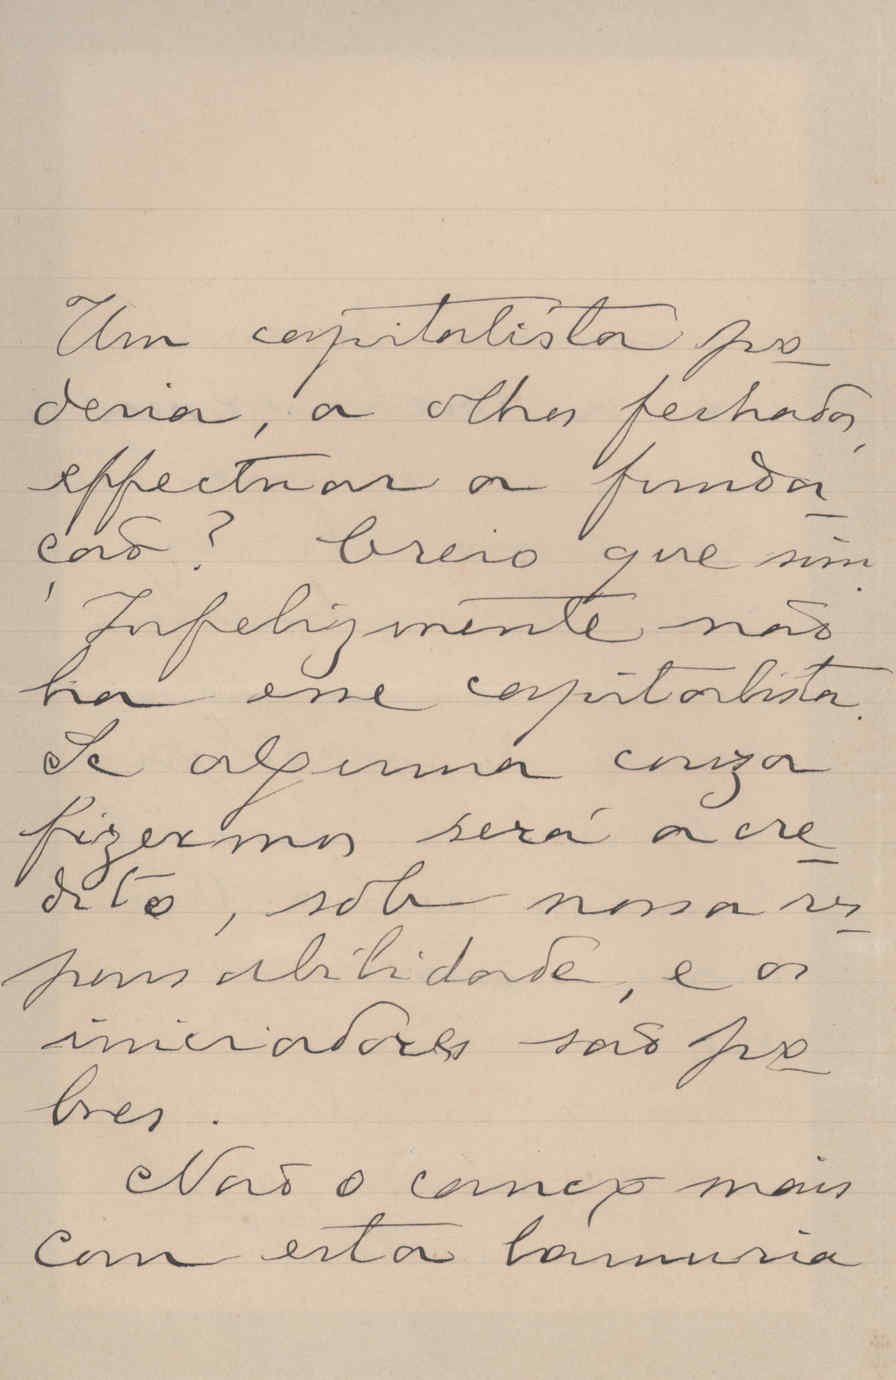 Um capitalista po-
deria, a olhos fechados,
effectuar a funda-
ção? Creio que sim.
Infelizmente não
ha esse capitalista.
Se alguma couza
fizermos será a cre-
dito, sob nossa res-
ponsabilidade, e os
iniciadores são po-
bres.
Não o canço mais
com esta lamuria